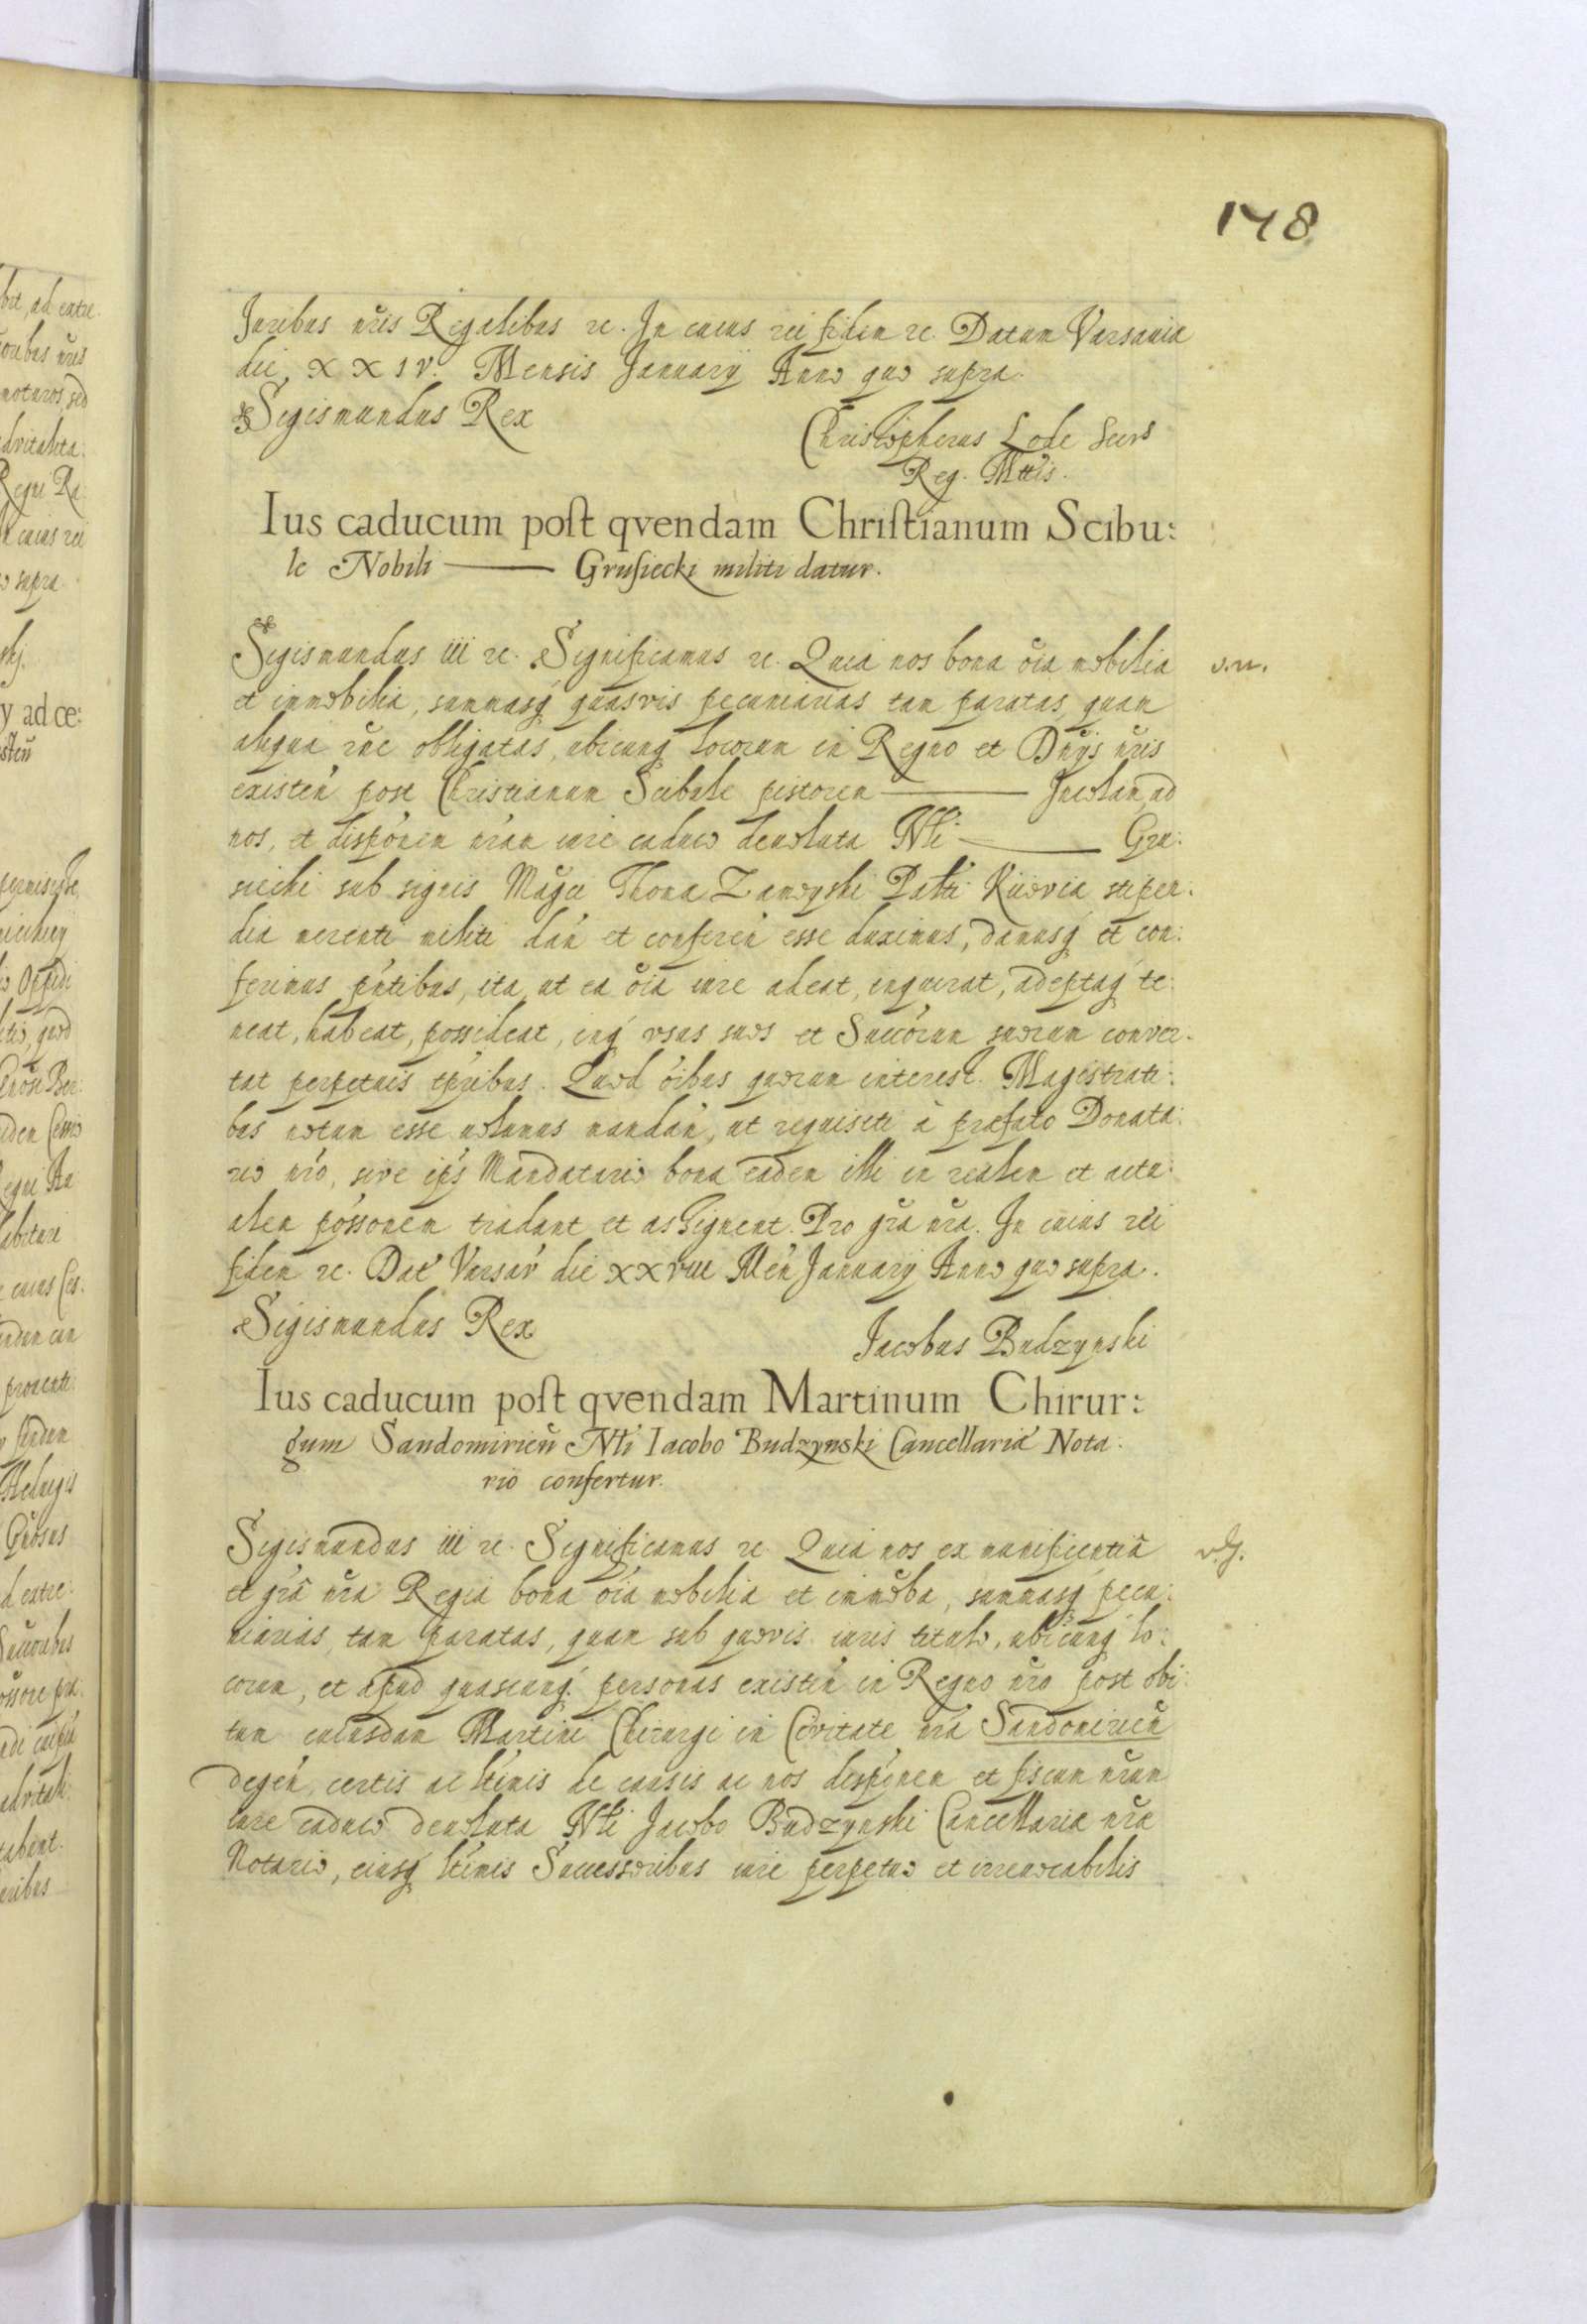 148
Juribus nr̃is Regalibus ꝛc. In cuius rei fidem ꝛc. Datum Varsaviæ
die XXIV. Mensis Januarij Anno quo supra.
Sigismundus Rex
Christopherus Lode Secrs
Reg. Mttis.
Ius caducum post qvendam Christianum Scibu:
le Nobili ——— Grusiecki militi datur.
Sigismundus iii ꝛc. Significamus ꝛc. Quia nos bona õia mobilia
et immobilia, summasq́ quasvis pecuniarias tam paratas, quam
aliqua rñe obligatas, ubicunq́ locorum in Regno et Dnijs nr̃is
existeń post Christianum Scibule pistorem ——— Incolam, ad
nos, et dispońem nr̃am iure caduco devoluta Nli ——— Gru:
siecki sub signis Mag̃ci Thomæ Zamoyski Palti Kijoviæ stipen:
dia merenti militi dań et confereń esse duximus, damusq́ et con:
ferimus pńtibus, ita, ut ea õia iure adeat, inquirat, adeptaq́ te:
neat, habeat, possideat, inq́ vsus suos et Succórum suorum conver:
tat perpetuis tṕribus. Quod óibus quorum interest. Magistrati:
bus notum esse volumus mandań, ut requisiti à præfato Donata:
rio nŕo, sive iṕs Mandatario bona eadem illi in realem et actu:
alem póssonem tradant et assignent. Pro grã nr̃a. In cuius réi
fidem ꝛc. Dať Varsav́ die XXVIII Meń Januarij Anno quo supra.
Sigismundus Rex
Jacobus Budzynski
Ius caducum post qvendam Martinum Chirur:
gum Sandomirień Nli Iacobo Budzynski Cancellariæ Nota:
rio confertur.
Sigismundus iii ꝛc. Significamus ꝛc. Quia nos ex munificentiâ
et grâ nr̃a Regia bona õia mobilia et immõba, summasq́ pecu:
niarias, tam paratas, quam sub quovis iuris titulo, ubicunq́ lo:
corum, et apud quascunq́ personas existeń in Regno nr̃o post obi:
tum cuiusdam Martini Chirurgi in Civitate nr̃a Sandomirień
degeń, certis ac ltímis de causis ac nos dispońem et fiscum nr̃um
iure caduco devoluta Nli Jacobo Budzynski Cancellariæ nr̃æ
Notario, eiusq́ ltímis Successoribus iure perpetuo et irrevocabilis